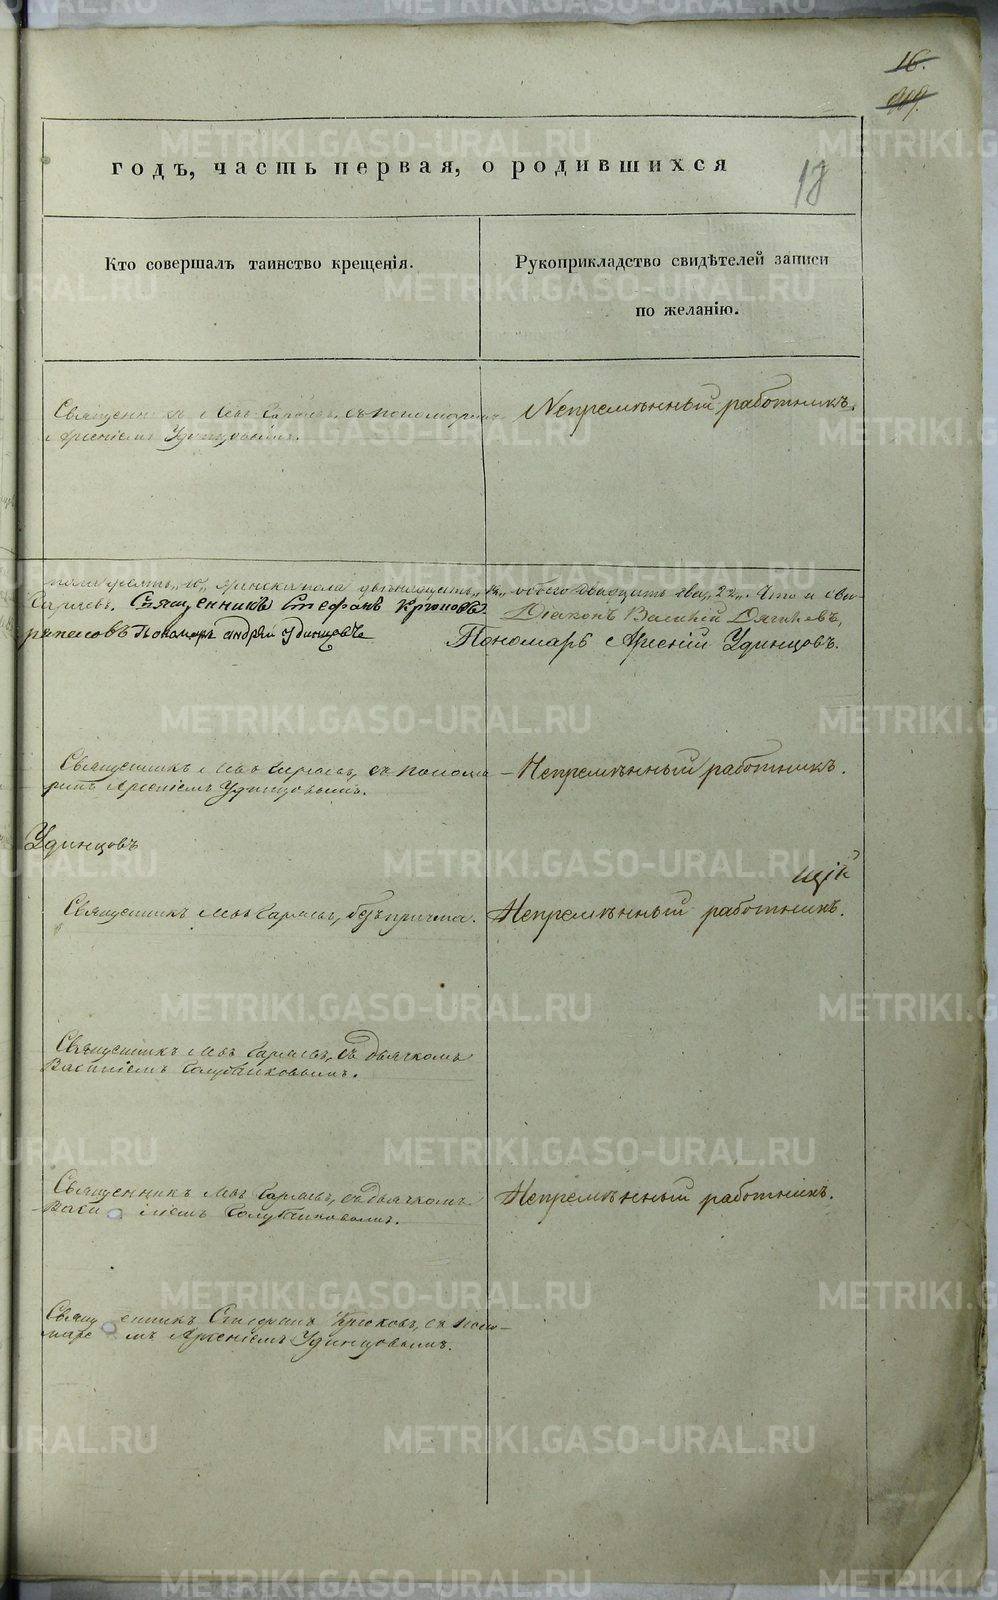 16.
годъ, часть первая, о родившихся
Кто совершалъ таинство крещенія.
Рукоприкладство свидѣтелей записи
по желанію.
Священникъ Левъ съ пономаремъ
Арсеніемъ Удинцовымъ.
Непремѣнный работникъ.
пола десять, 10, женска пола двѣнадцать, 12, обоего двадцать два, 22. Что и сви-
Священникъ Стефанъ Крюковъ.
Діаконъ Василій
Пономарь Андрей Удинцовъ
Пономарь Арсеній Удинцовъ.
Священникъ Левъ съ понома
ремъ Арсеніемъ Удинцовымъ.
Непремѣнный работникъ.
Удинцовъ
щій
Священникъ Левъ безъ причта.
Непремѣнный работникъ.
Священникъ Левъ съ дьячкомъ
Василіемъ
Священникъ Левъ съ дьячкомъ
Васи ліемъ
Непремѣнный работникъ.
Свящ енникъ Стефанъ Крюковъ, съ поно-
маре мъ Арсеніемъ Удинцовымъ.
METRIKI.GASO-URAL.RU